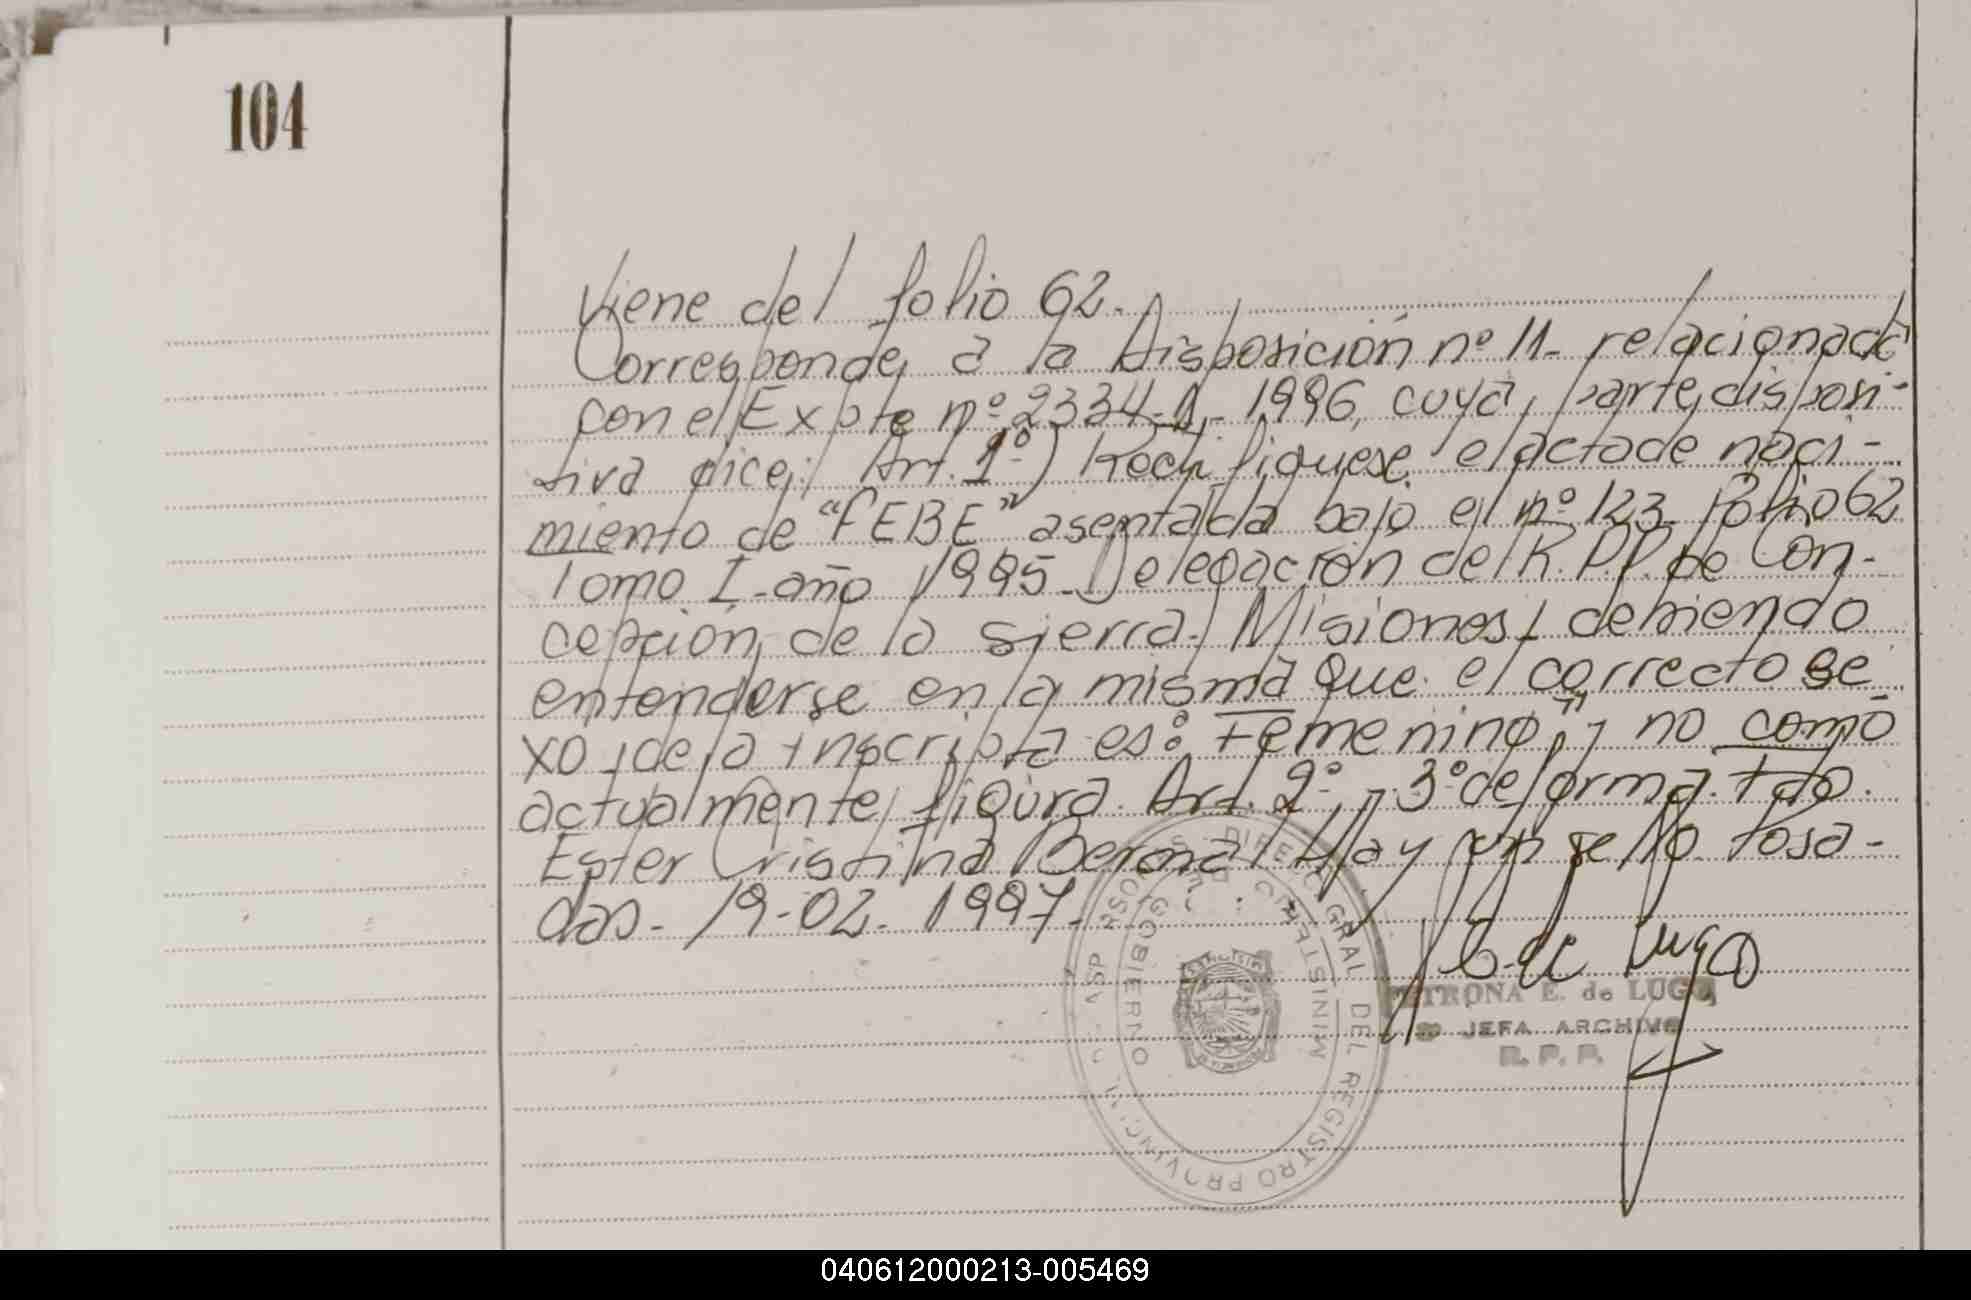 104
Viene del folio 62.
Corresponde a la Disposición nº 11- relacionada
con el Expte nº 2334-A- 1996, cuya parte disposi-
tiva dice: Art. 1º) Rectifiquese el acta de naci-
miento de "FEBE" asentada bajo el nº 123 folio 62
Tomo I-año 1995- Delegación del R.P.P. de Con-
cepcion de la Sierra- Misiones- debiendo
entenderse en la misma que el correcto se
xo de la inscripta es: Femenino, y no como
actualmente figura. Art. 2º, y 3º de forma. Fdo.
Ester Cristina Bernal. Hay un sello Posa-
das- 19-02-1997-
E. de Lugo
PETRONA E. de LUGO
JEFA ARCHIVO
R. P. P.
DIREC. GRAL. DEL REGISTRO PROVINC.
MINIST
GOBIERNO
040612000213-005469